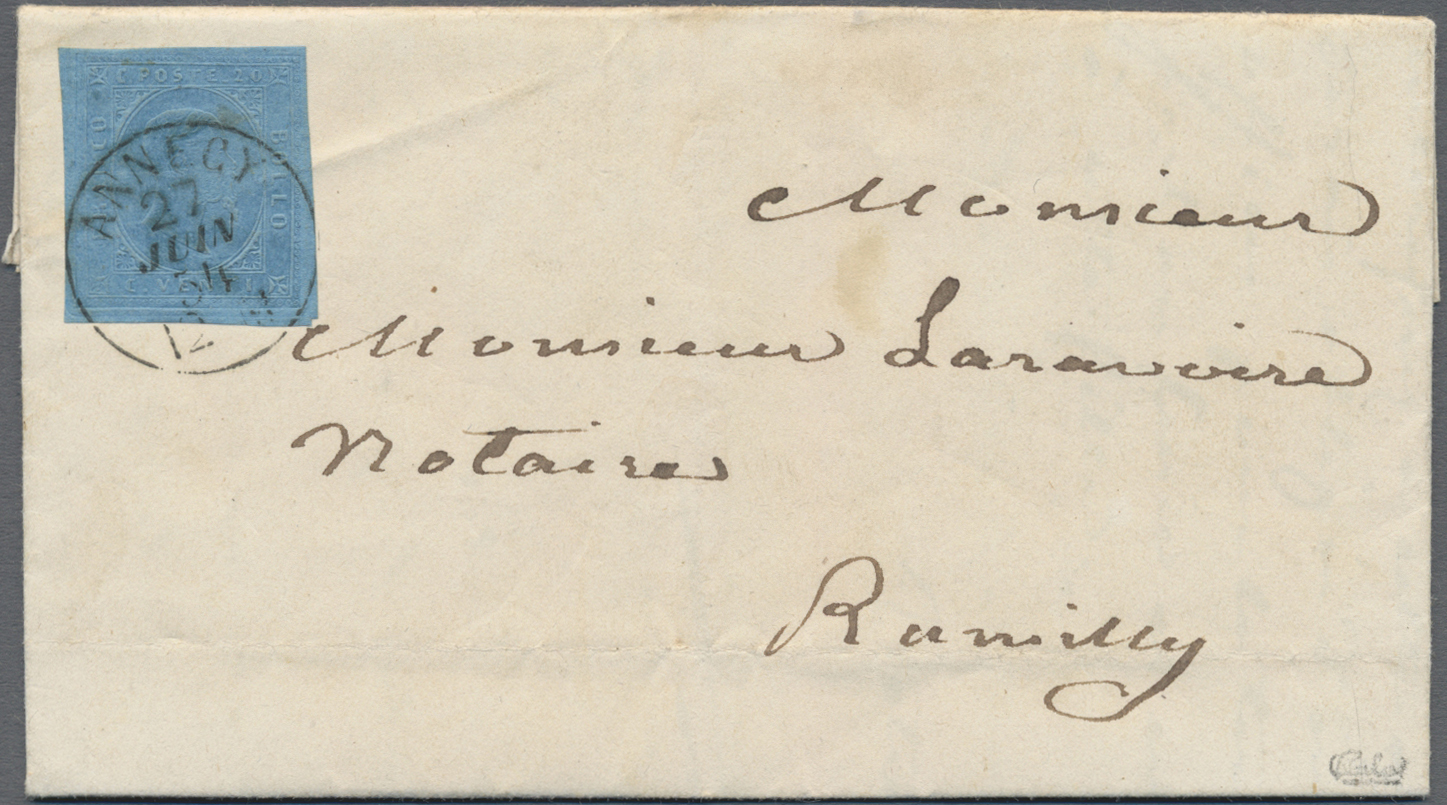 C. POSTE 20
BOLLO
C. VENTI
ANNECY
27
JUIN
54
Monsieur
Monsieur Laravoire
Notaire
Rumilly